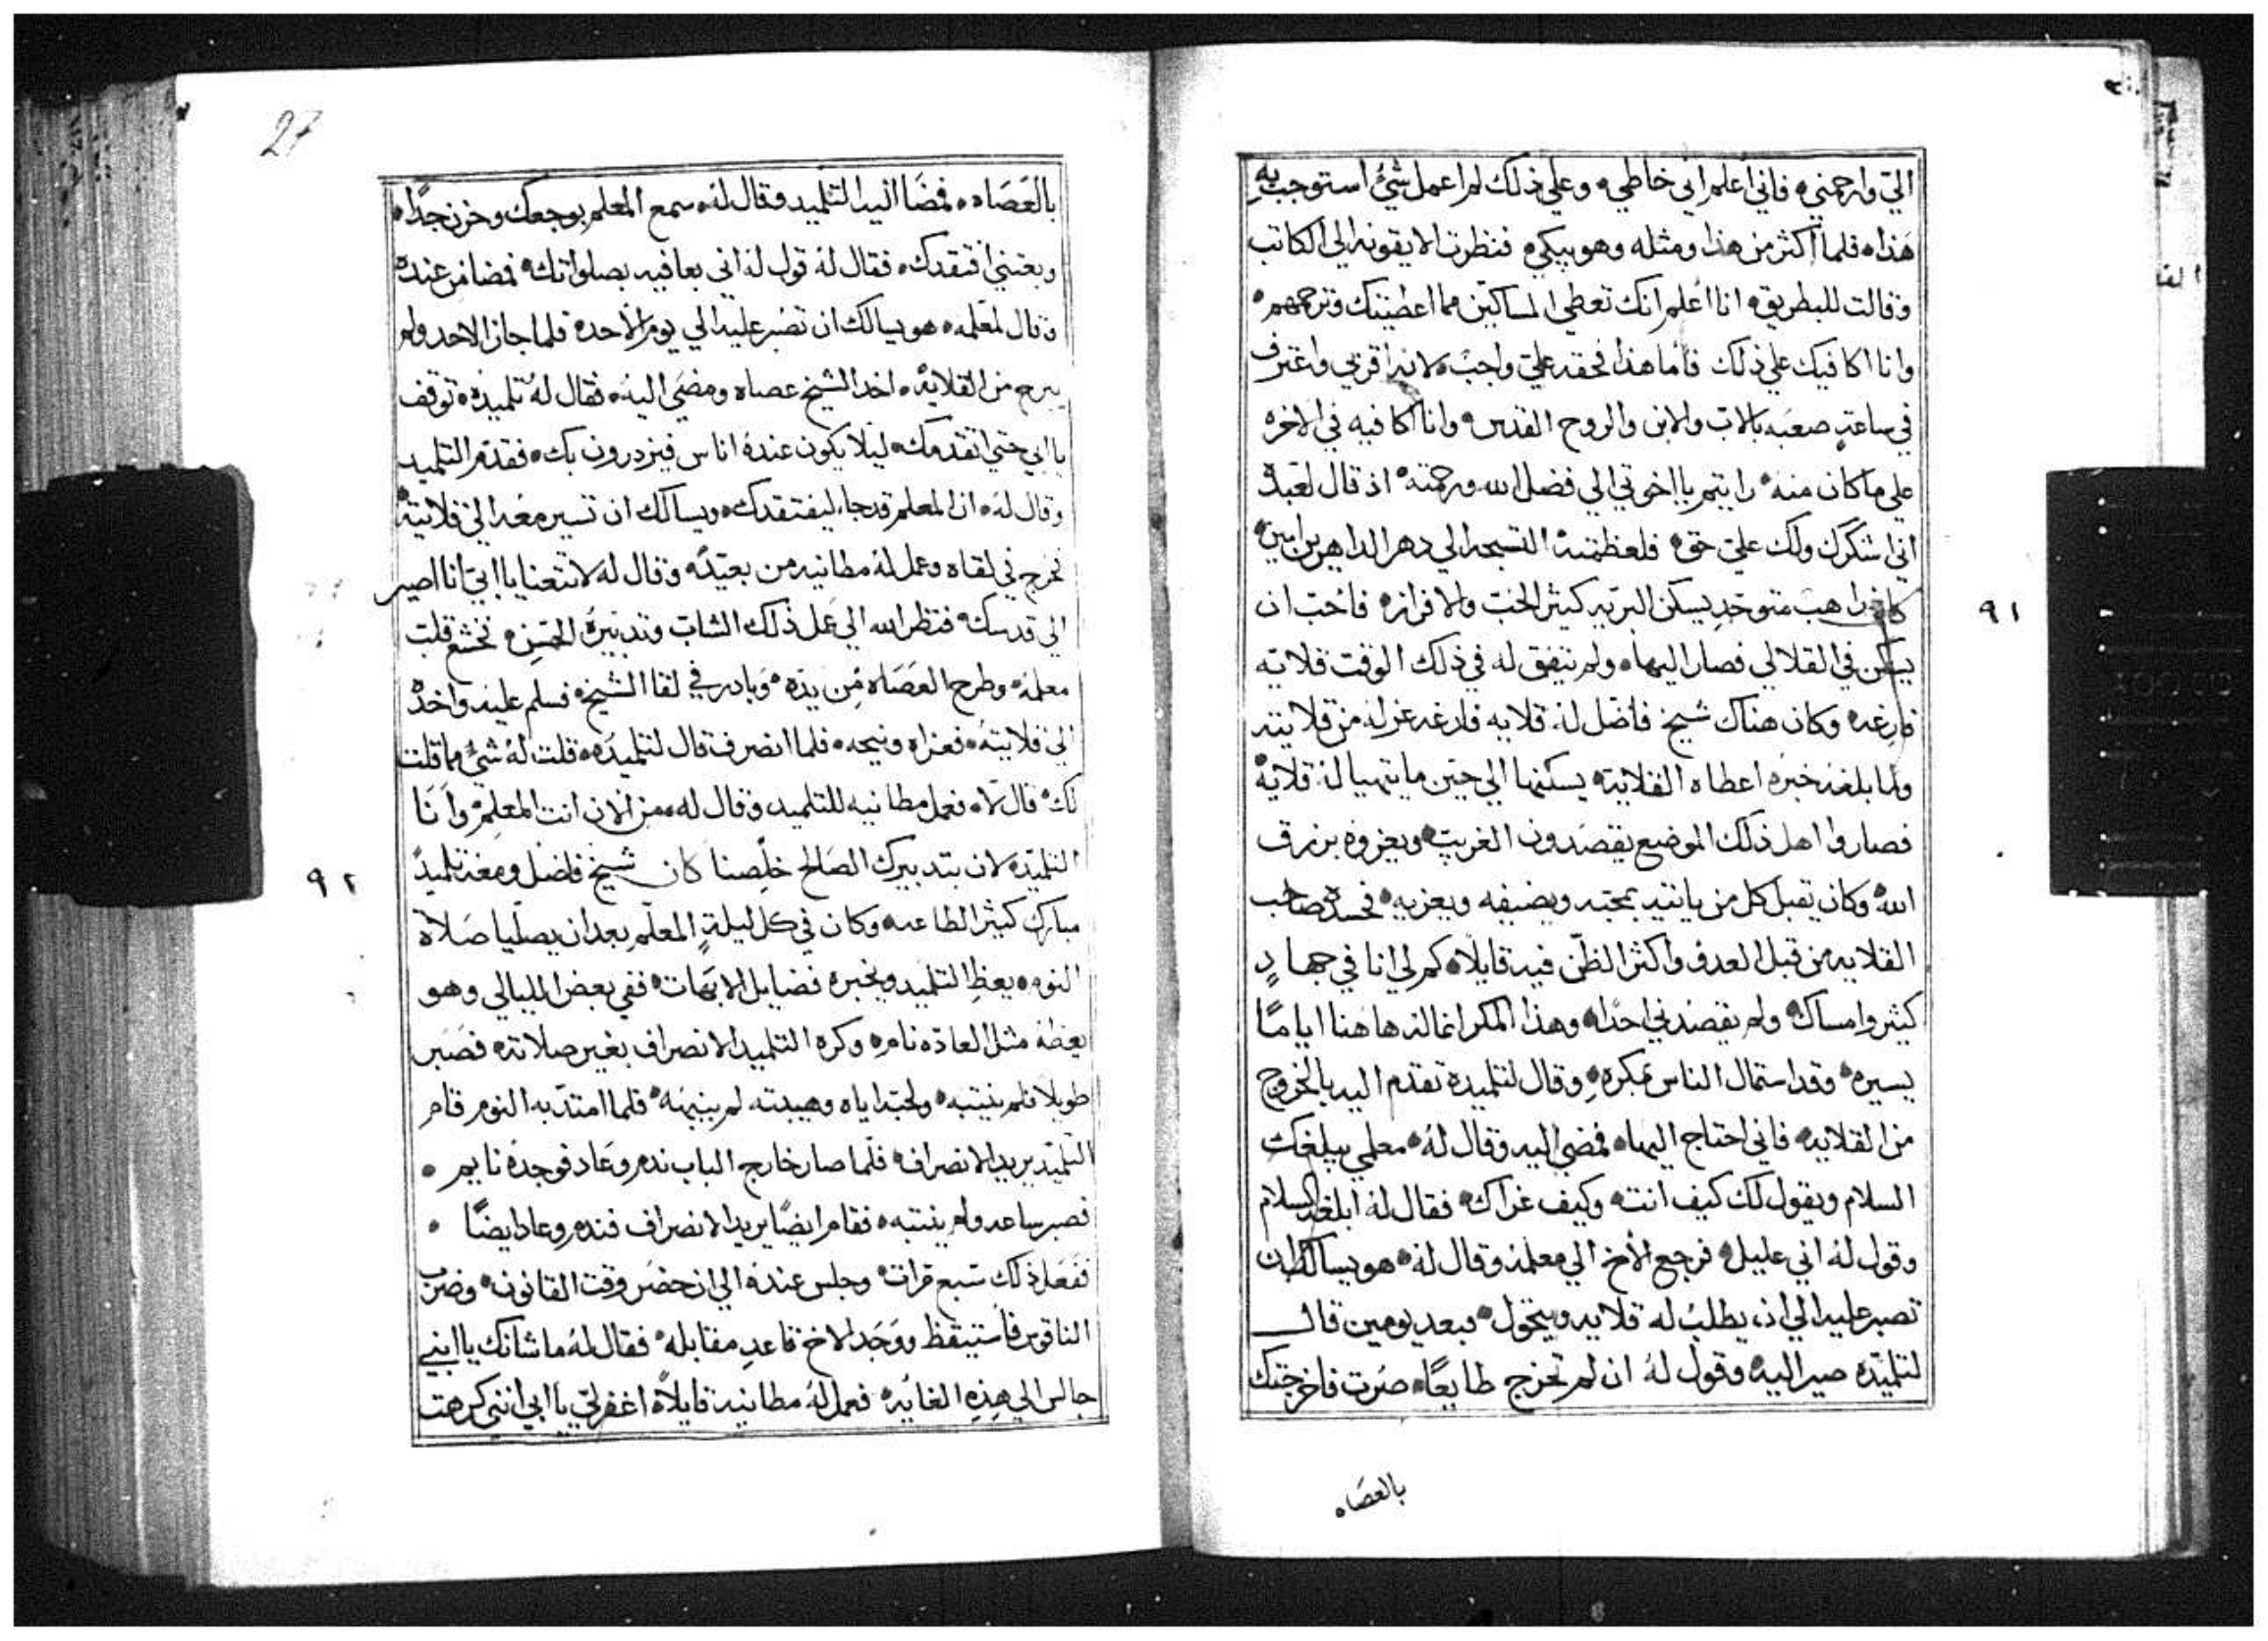 الي وارحمني، فاني اعلم اني خاطي، وعلي ذلك لم اعمل شيً استوجب به
هذا، فلما اكثر من هذا ومثله وهو يبكي، فنظرت الايقونه الي الكاتب
وقالت للبطريق، انا اعلم انك تعطي المساكين مما اعطيتك وترحمهم،
وانا اكافيك علي ذلك فاما هذا فحقه علي واجب، لانه اقر بي واعترف
في ساعةٍ صعبه بالاب والابن والروح القدس، وانا اكافيه في الاخره
علي ما كان منه، رايتم يا اخوتي الي فضل الله ورحمته، اذ قال لعبدهٔ
اني اشكرك ولك علي حق، فلعظمته التسبحه الي دهر الداهرين امين،
كان راهب متوحدٍ يسكن البريه كثير الحب والافراز، فاحب ان
يسكن في القلالي فصار اليها، ولم يتفق له في ذلك الوقت قلايه
فارغه، وكان هناك شيخ فاضل له قلايه فارغه عزله من قلايته
ولما بلغه خبره اعطاه القلايه، يسكنها الي حين ما يتهيا له قلايهٔ
فصاروا اهل ذلك الموضع يقصدون الغريب، ويعزوه برزق
الله، وكان يقبل كل من ياتيه بمحبته ويضيفه ويعزيه، فحسده صاحب
القلايه من قبل العدو، واكثر الظن فيه قايلاً، كم لي انا في جهادٍ
كثير وامساك، ولم يقصدني احدًا، وهذا المكر انما له هاهنا ايامًا
يسيره، وقد استمال الناس بمكره، وقال لتلميده تقدم اليه بالخروج
من القلايه، فاني احتاج اليها، فمضي اليه وقال لهٔ، معلمي يبلغك
السلام ويقول لك كيف انت، وكيف عزاك، فقال لهٔ ابلغه السلام
وقول لهٔ اني عليل، فرجع الأخ الي معلمهٔ وقال لهٔ، هو يسالك ان
تصبر عليه الي ان يطلب له قلايه ويتحول، فبعد يومين قال
لتلميده صير اليه، وقول لهٔ ان لم تخرج طايعًا، صرت فاخرجتك
بالعصاه
٩١
27
بالعصاه، فمضا اليه التلميد وقال له، سمع المعلم بوجعك وحزن جدًا،
وبعثني افتقدك، فقال لهٔ قول لهٔ اني بعافيه بصلواتك، فمضا من عنده
وقال لمعلمه، هو يسالك ان تصبر عليه الي يوم الاحد، فلما جاز الاحد ولم
يبرح من القلايهٔ، اخد الشيخ عصاه ومضي اليه، فقال لهٔ تلميده، توقف
يا ابي حتي اتقدمك، ليلا يكون عندهٔ اناس فيزدرون بك، فتقدم التلميد
وقال لهٔ، ان المعلم قد جا، ليفتقدك، ويسالك ان تسير معه الي قلايته
فخرج في لقاه وعمل لهٔ مطانيه من بعيد، وقال له لا تتعنا يا ابي انا اصير
الي قدسك، فنظر الله الي عمل ذلك الشاب وتدبيرهٔ الحسن، فخشع قلب
معلمهٔ، وطرح العصاه من يده، وبادر في لقا الشيخ، فسلم عليه واخده
الي قلايتهٔ، فعزاه ونيحه، فلما انصرف قال لتلميده، قلت لهٔ شيً مما قلت
لك، قال لا، فعمل مطانيه للتلميد، وقال له، من الان انت المعلم، وانا
التلميد، لان بتدبيرك الصالح خلصنا كان شيخ فاضل ومعه تلميدً
مبارك كثير الطاعه، وكان في كل ليلةٍ المعلم بعد ان يصليا صلاة
النوم، يعظ التلميد ويخبره فضايل الابهات، ففي بعض الليالي وهو
يعظه مثل العاده نام، وكره التلميد الانصراف بغير صلاته، فصبر
طويلاً فلم ينتبه، ولحبه اياه وهيبته لم ينبهه، فلما امتد به النوم قام
التلميد يريد الانصراف، فلما صار خارج الباب ندم وعاد فوجدهٔ نايم،
فصبر ساعه ولم ينتبه، فقام ايضًا يريد الانصراف فندم وعاد ايضًا،
ففعل ذلك سبع مرات، وجلس عنده الي ان حضر وقت القانون، وضرب
الناقوس فاستيقظ ووجد الاخ قاعدٍ مقابله، فقال لهٔ ما شانك يا ابني
جالس الي هذه الغايه، فعمل لهٔ مطانيه قايلاً، اغفر لي يا ابي انني كرهت
٩٢